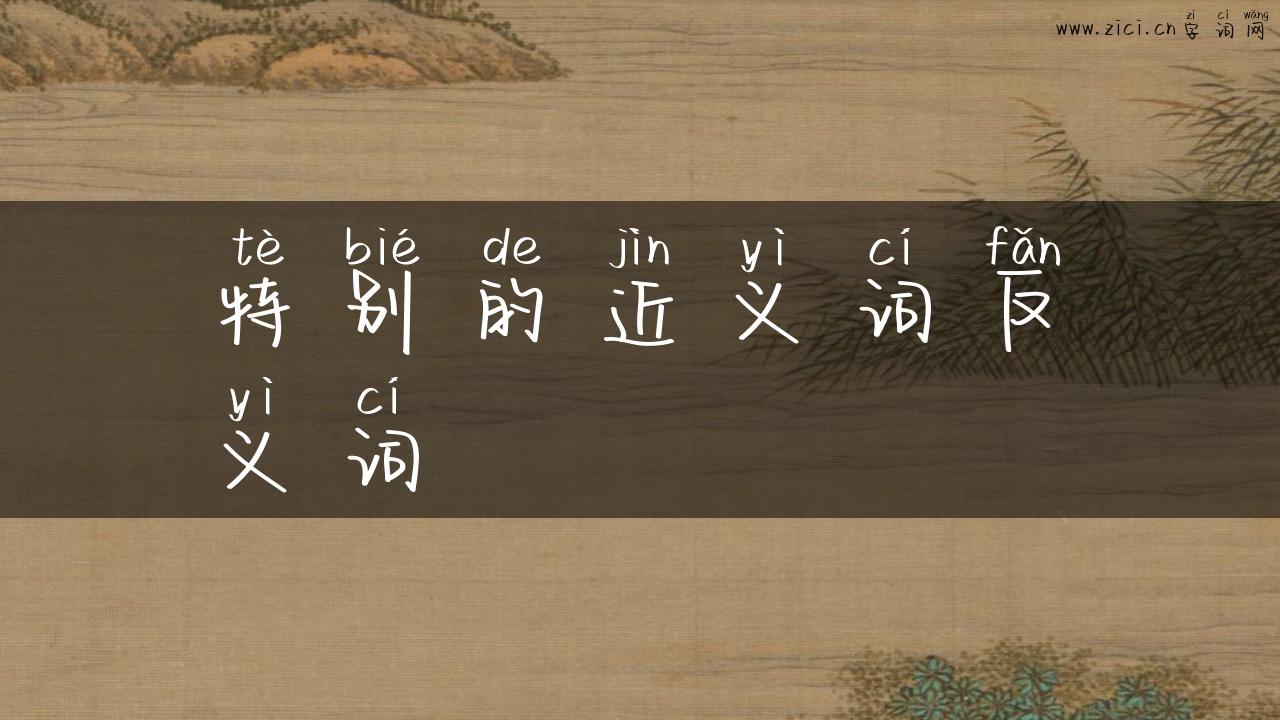 zì cí wǎng
www.zici.cn 字词网
tè bié de jìn yì cí fǎn
特别的近义词反
yì cí
义词